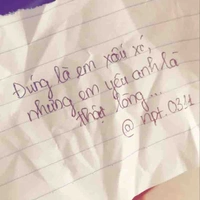 Đúng là em xấu xí,
nhưng em yêu anh là
thật lòng...
@ npt.0311